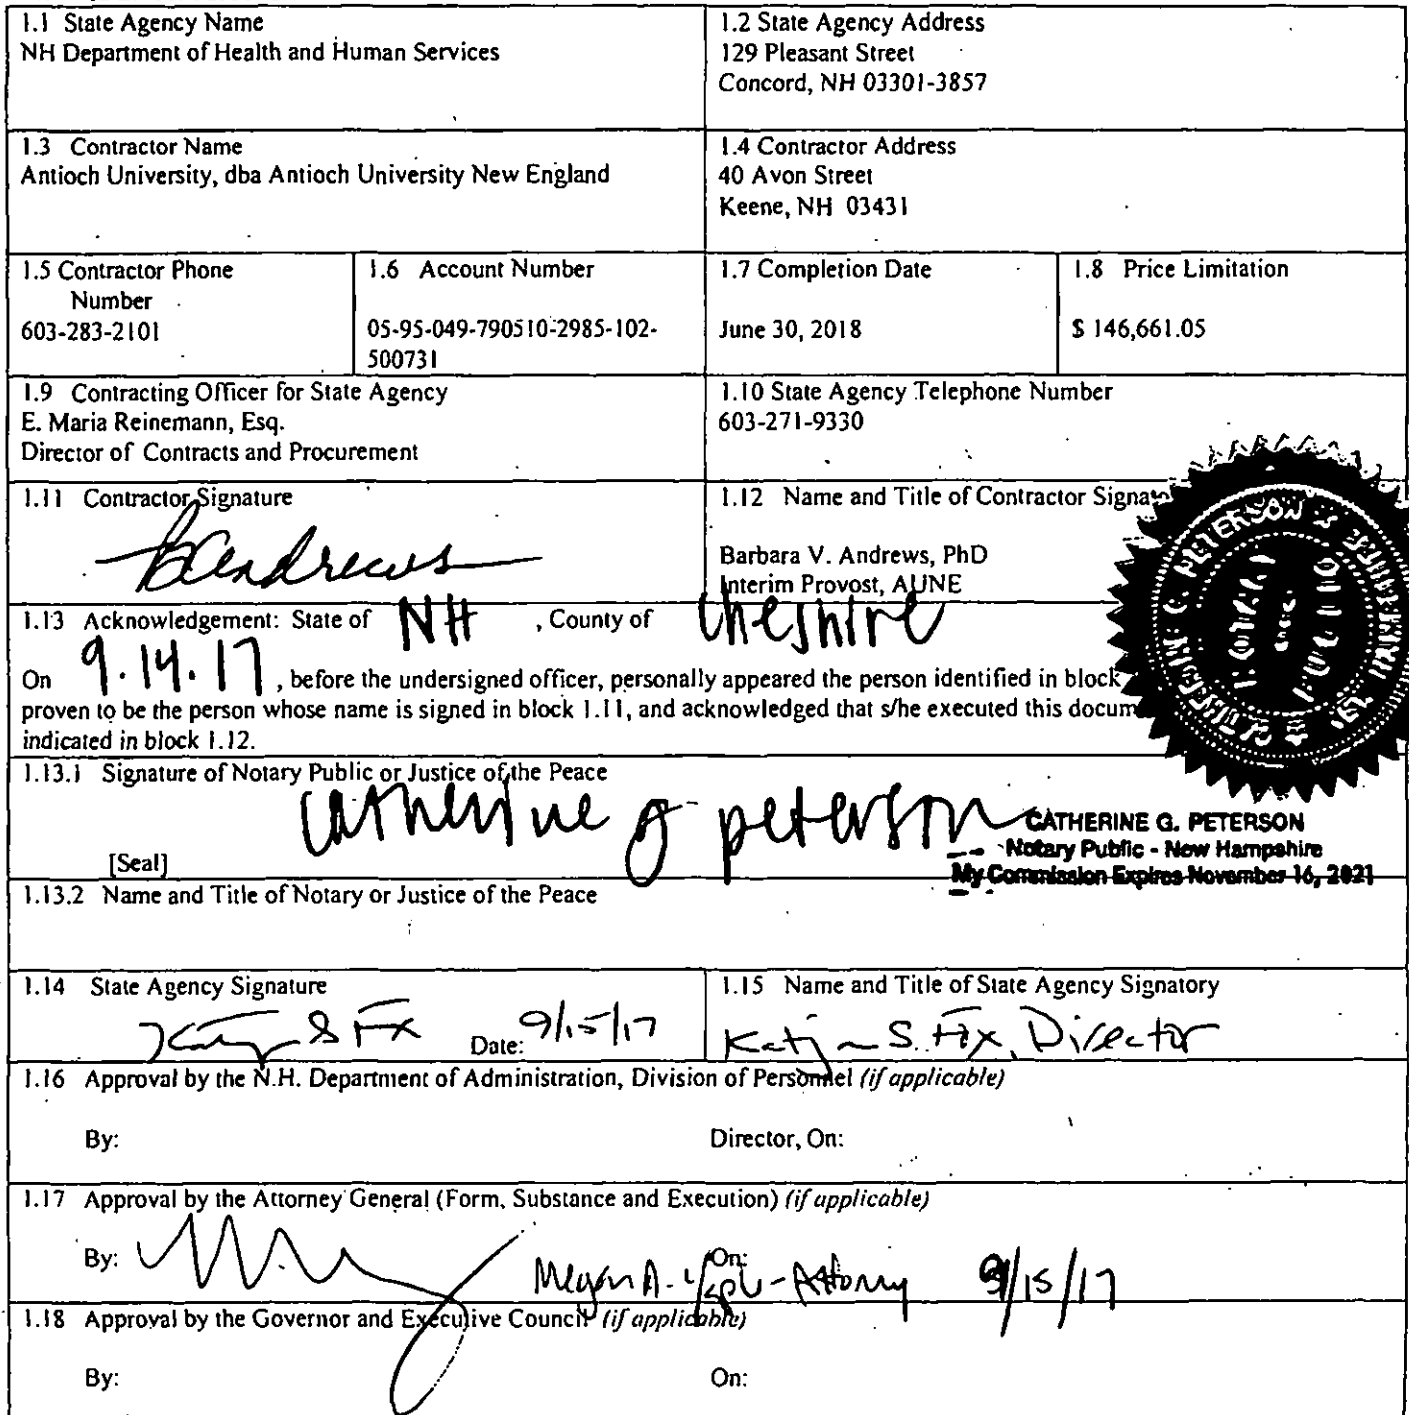 1.1 State Agency Name
NH Department of Health and Human Services
1.2 State Agency Address
129 Pleasant Street
Concord, NH 03301-3857
1.3 Contractor Name
Antioch University, dba Antioch University New England
1.4 Contractor Address
40 Avon Street
Keene, NH 03431
1.5 Contractor Phone
Number
603-283-2101
1.6 Account Number
05-95-049-790510-2985-102-
500731
1.7 Completion Date
June 30, 2018
1.8 Price Limitation
$ 146,661.05
1.9 Contracting Officer for State Agency
E. Maria Reinemann, Esq.
Director of Contracts and Procurement
1.10 State Agency Telephone Number
603-271-9330
1.11 Contractor Signature
BAndrews
1.12 Name and Title of Contractor Signato
Barbara V. Andrews, PhD
Interim Provost, AUNE
1.13 Acknowledgement: State of NH , County of Cheshire
On 9.14.17 , before the undersigned officer, personally appeared the person identified in block
proven to be the person whose name is signed in block 1.11, and acknowledged that s/he executed this docum
indicated in block 1.12.
1.13.1 Signature of Notary Public or Justice of the Peace
Catherine g peterson
[Seal]
CATHERINE G. PETERSON
Notary Public - New Hampshire
My Commission Expires November 16, 2021
1.13.2 Name and Title of Notary or Justice of the Peace
1.14 State Agency Signature
S Fox Date: 9/15/17
1.15 Name and Title of State Agency Signatory
Katja S. Fox, Director
1.16 Approval by the N.H. Department of Administration, Division of Personnel (if applicable)
By: Director, On:
1.17 Approval by the Attorney General (Form, Substance and Execution) (if applicable)
By: Megan A. - Attorney On: 9/15/17
1.18 Approval by the Governor and Executive Council (if applicable)
By: On: